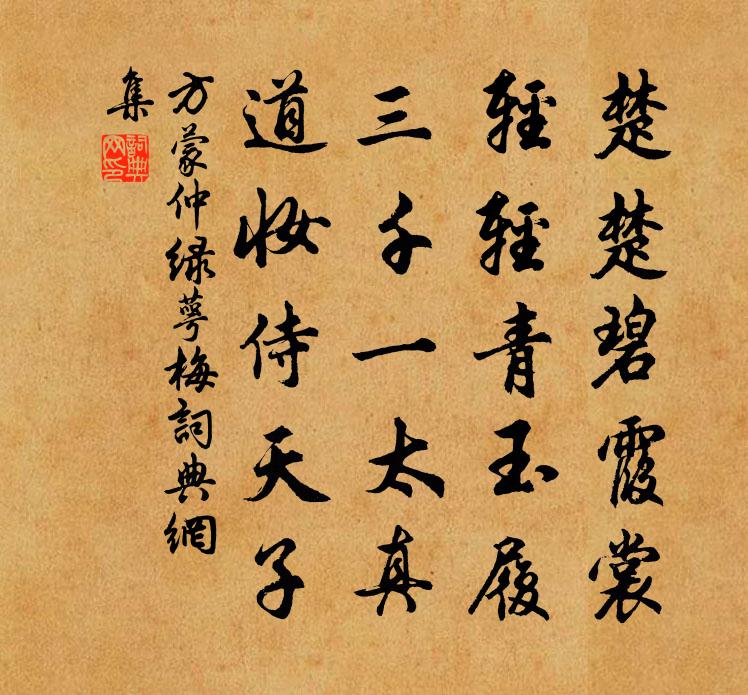 楚楚碧霞裳
輕輕青玉履
三千一太真
道妝侍天子
方蒙仲綠萼梅詞典網
集
詞典網印